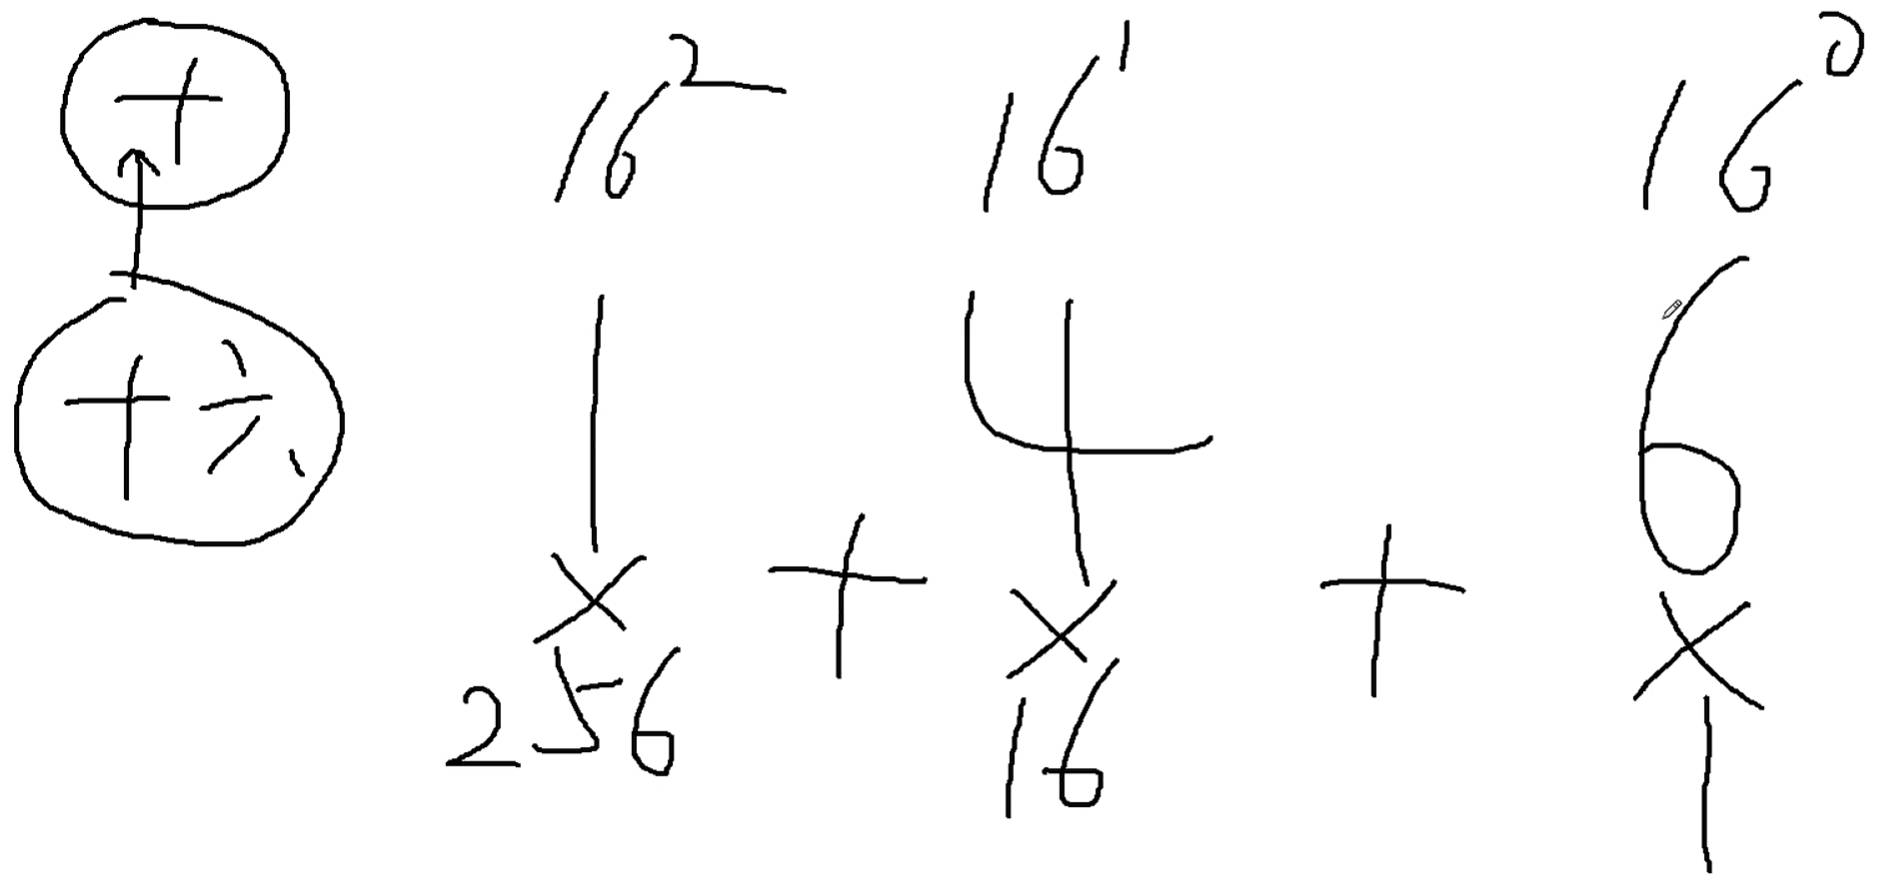 十 16² 16¹ 16⁰
十六 1 4 6
× + × + ×
256 16 1